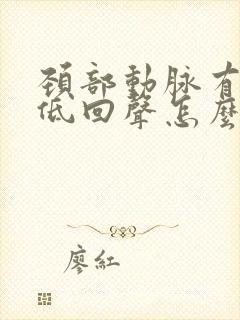 頚部動脉有
低回聲怎麼
廖紅